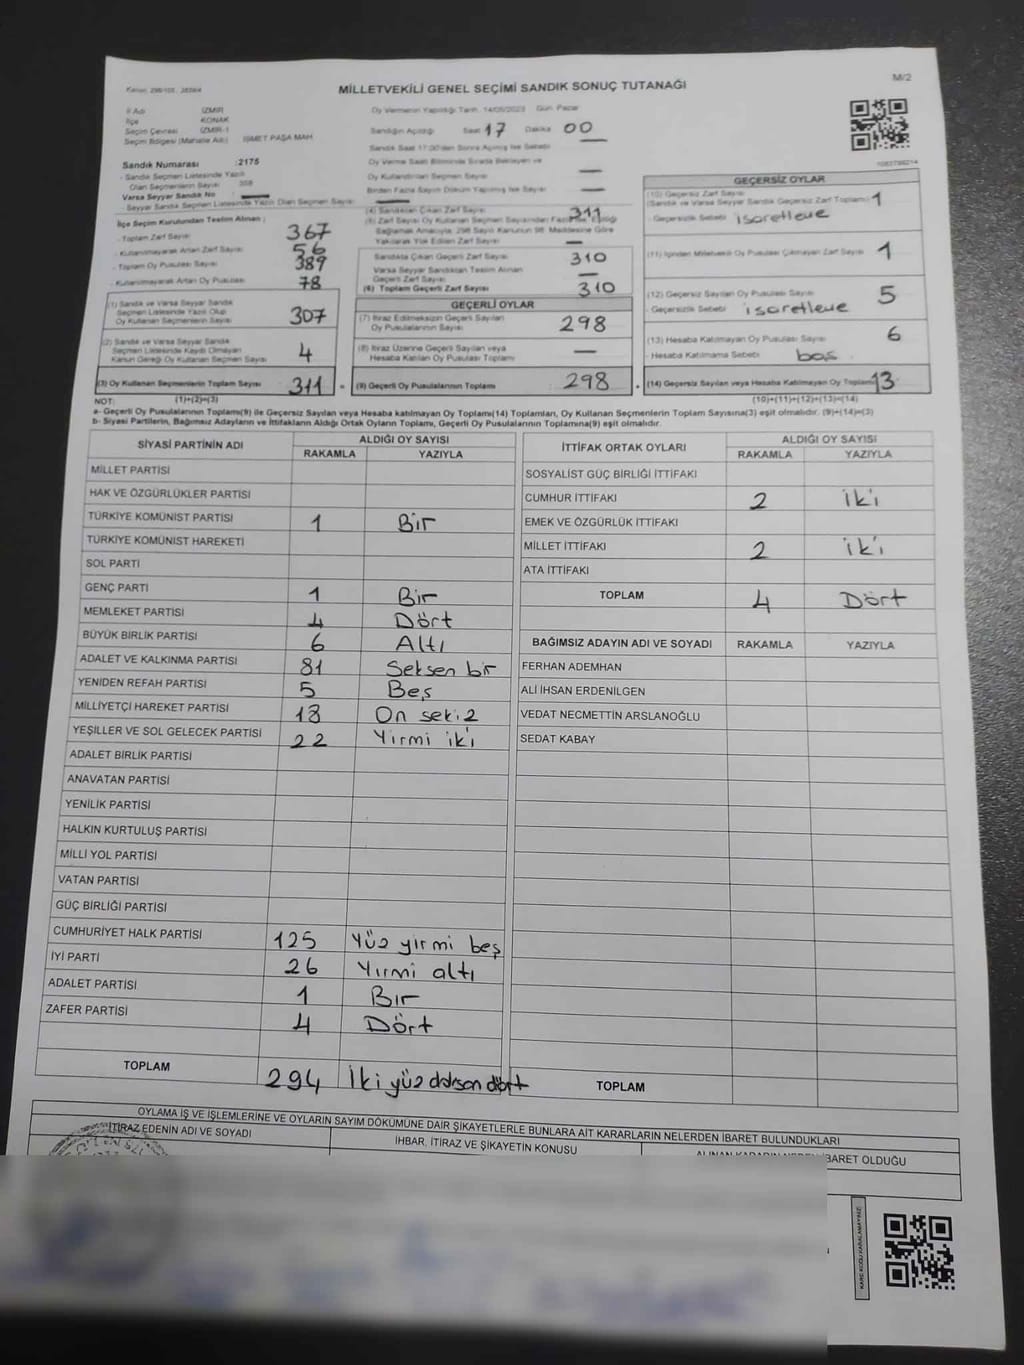 MİLLETVEKİLİ GENEL SEÇİMİ SANDIK SONUÇ TUTANAĞI
M/2
İl Adı İZMİR
İlçe KONAK
Seçim Çevresi İZMİR-1
Seçim Bölgesi (Mahalle Adı) İSMET PAŞA MAH
Oy Vermenin Yapıldığı Tarih 14/05/2023 Gün Pazar
Sandığın Açıldığı Saat 17 Dakika 00
Sandık Saat 17:00'den Sonra Açılmış İse Sebebi
Oy Verme Saati Bitiminde Sırada Bekleyen ve
Oy Kullandırılan Seçmen Sayısı
Birden Fazla Sayım Döküm Yapılmış İse Sayısı
Sandık Numarası :2175
- Sandık Seçmen Listesinde Yazılı
Olan Seçmenlerin Sayısı
Varsa Seyyar Sandık No
- Seyyar Sandık Seçmen Listesinde Yazılı Olan Seçmen Sayısı
İlçe Seçim Kurulundan Teslim Alınan ;
- Toplam Zarf Sayısı 367
- Kullanılmayarak Artan Zarf Sayısı 56
- Toplam Oy Pusulası Sayısı 389
- Kullanılmayarak Artan Oy Pusulası 78
(1) Sandık ve Varsa Seyyar Sandık
Seçmen Listesinde Yazılı Olup
Oy Kullanan Seçmenlerin Sayısı 307
(2) Sandık ve Varsa Seyyar Sandık
Seçmen Listesinde Kaydı Olmayan
Kanun Gereği Oy Kullanan Seçmen Sayısı 4
(3) Oy Kullanan Seçmenlerin Toplam Sayısı 311
(1)+(2)=(3)
(4) Sandıktan Çıkan Zarf Sayısı 311
(5) Zarf Sayısı Oy Kullanan Seçmen Sayısından Fazla İse, Eşitliği
Sağlamak Amacıyla, 298 Sayılı Kanunun 98. Maddesine Göre
Yakılarak Yok Edilen Zarf Sayısı
Sandıkta Çıkan Geçerli Zarf Sayısı 310
Varsa Seyyar Sandıktan Teslim Alınan
Geçerli Zarf Sayısı
(6) Toplam Geçerli Zarf Sayısı 310
GEÇERLİ OYLAR
(7) İtiraz Edilmeksizin Geçerli Sayılan
Oy Pusulalarının Sayısı 298
(8) İtiraz Üzerine Geçerli Sayılan veya
Hesaba Katılan Oy Pusulası Toplamı
(9) Geçerli Oy Pusulalarının Toplamı 298
GEÇERSİZ OYLAR
(10) Geçersiz Zarf Sayısı
(Sandık ve Varsa Seyyar Sandık Geçersiz Zarf Toplamı) 1
- Geçersizlik Sebebi isaretleve
(11) İçinden Milletvekili Oy Pusulası Çıkmayan Zarf Sayısı 1
(12) Geçersiz Sayılan Oy Pusulası Sayısı 5
- Geçersizlik Sebebi isaretleve
(13) Hesaba Katılmayan Oy Pusulası Sayısı 6
- Hesaba Katılmama Sebebi bos
(14) Geçersiz Sayılan veya Hesaba Katılmayan Oy Toplamı 13
(10)+(11)+(12)+(13)=(14)
NOT:
a- Geçerli Oy Pusulalarının Toplamı(9) ile Geçersiz Sayılan veya Hesaba katılmayan Oy Toplamı(14) Toplamları, Oy Kullanan Seçmenlerin Toplam Sayısına(3) eşit olmalıdır. (9)+(14)=(3)
b- Siyasi Partilerin, Bağımsız Adayların ve İttifakların Aldığı Ortak Oyların Toplamı, Geçerli Oy Pusulalarının Toplamına(9) eşit olmalıdır.
SİYASİ PARTİNİN ADI ALDIĞI OY SAYISI
RAKAMLA YAZIYLA
MİLLET PARTİSİ
HAK VE ÖZGÜRLÜKLER PARTİSİ
TÜRKİYE KOMÜNİST PARTİSİ 1 Bir
TÜRKİYE KOMÜNİST HAREKETİ
SOL PARTİ
GENÇ PARTİ 1 Bir
MEMLEKET PARTİSİ 4 Dört
BÜYÜK BİRLİK PARTİSİ 6 Altı
ADALET VE KALKINMA PARTİSİ 81 Seksen bir
YENİDEN REFAH PARTİSİ 5 Beş
MİLLİYETÇİ HAREKET PARTİSİ 18 On sekiz
YEŞİLLER VE SOL GELECEK PARTİSİ 22 Yirmi iki
ADALET BİRLİK PARTİSİ
ANAVATAN PARTİSİ
YENİLİK PARTİSİ
HALKIN KURTULUŞ PARTİSİ
MİLLİ YOL PARTİSİ
VATAN PARTİSİ
GÜÇ BİRLİĞİ PARTİSİ
CUMHURİYET HALK PARTİSİ 125 Yüz yirmi beş
İYİ PARTİ 26 Yirmi altı
ADALET PARTİSİ 1 Bir
ZAFER PARTİSİ 4 Dört
TOPLAM 294 İki yüz doksan dört
İTTİFAK ORTAK OYLARI ALDIĞI OY SAYISI
RAKAMLA YAZIYLA
SOSYALİST GÜÇ BİRLİĞİ İTTİFAKI
CUMHUR İTTİFAKI 2 iki
EMEK VE ÖZGÜRLÜK İTTİFAKI
MİLLET İTTİFAKI 2 iki
ATA İTTİFAKI
TOPLAM 4 Dört
BAĞIMSIZ ADAYIN ADI VE SOYADI RAKAMLA YAZIYLA
FERHAN ADEMHAN
ALİ İHSAN ERDENİLGEN
VEDAT NECMETTİN ARSLANOĞLU
SEDAT KABAY
TOPLAM
OYLAMA İŞ VE İŞLEMLERİNE VE OYLARIN SAYIM DÖKÜMÜNE DAİR ŞİKAYETLERLE BUNLARA AİT KARARLARIN NELERDEN İBARET BULUNDUKLARI
İTİRAZ EDENİN ADI VE SOYADI
İHBAR, İTİRAZ VE ŞİKAYETİN KONUSU
ALINAN KARARIN NEDEN İBARET OLDUĞU